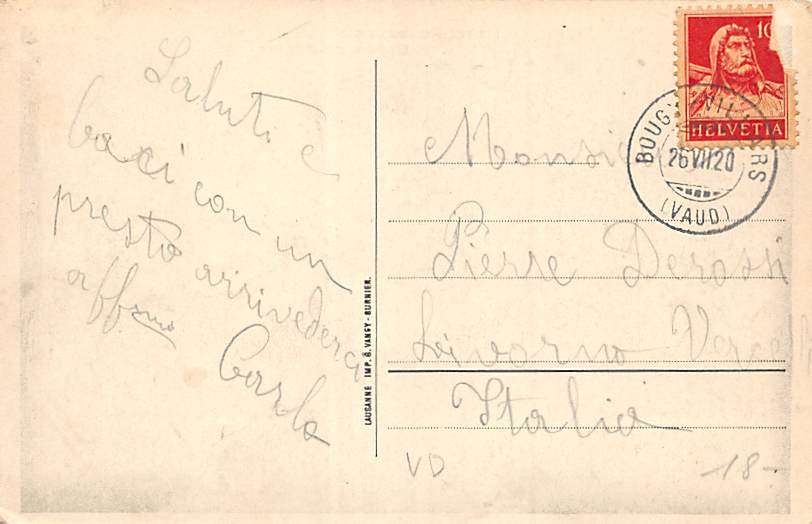 Saluti e
baci con un
presto arrivederci
affmo
Carlo
LAUSANNE IMP. G. VANEY-BURNIER.
10
HELVETIA
BOUGY-VILLARS
26 VII 20
(VAUD)
Monsieur
Pierre Derossi
Livorno Vercelli
Italia
VD
18-